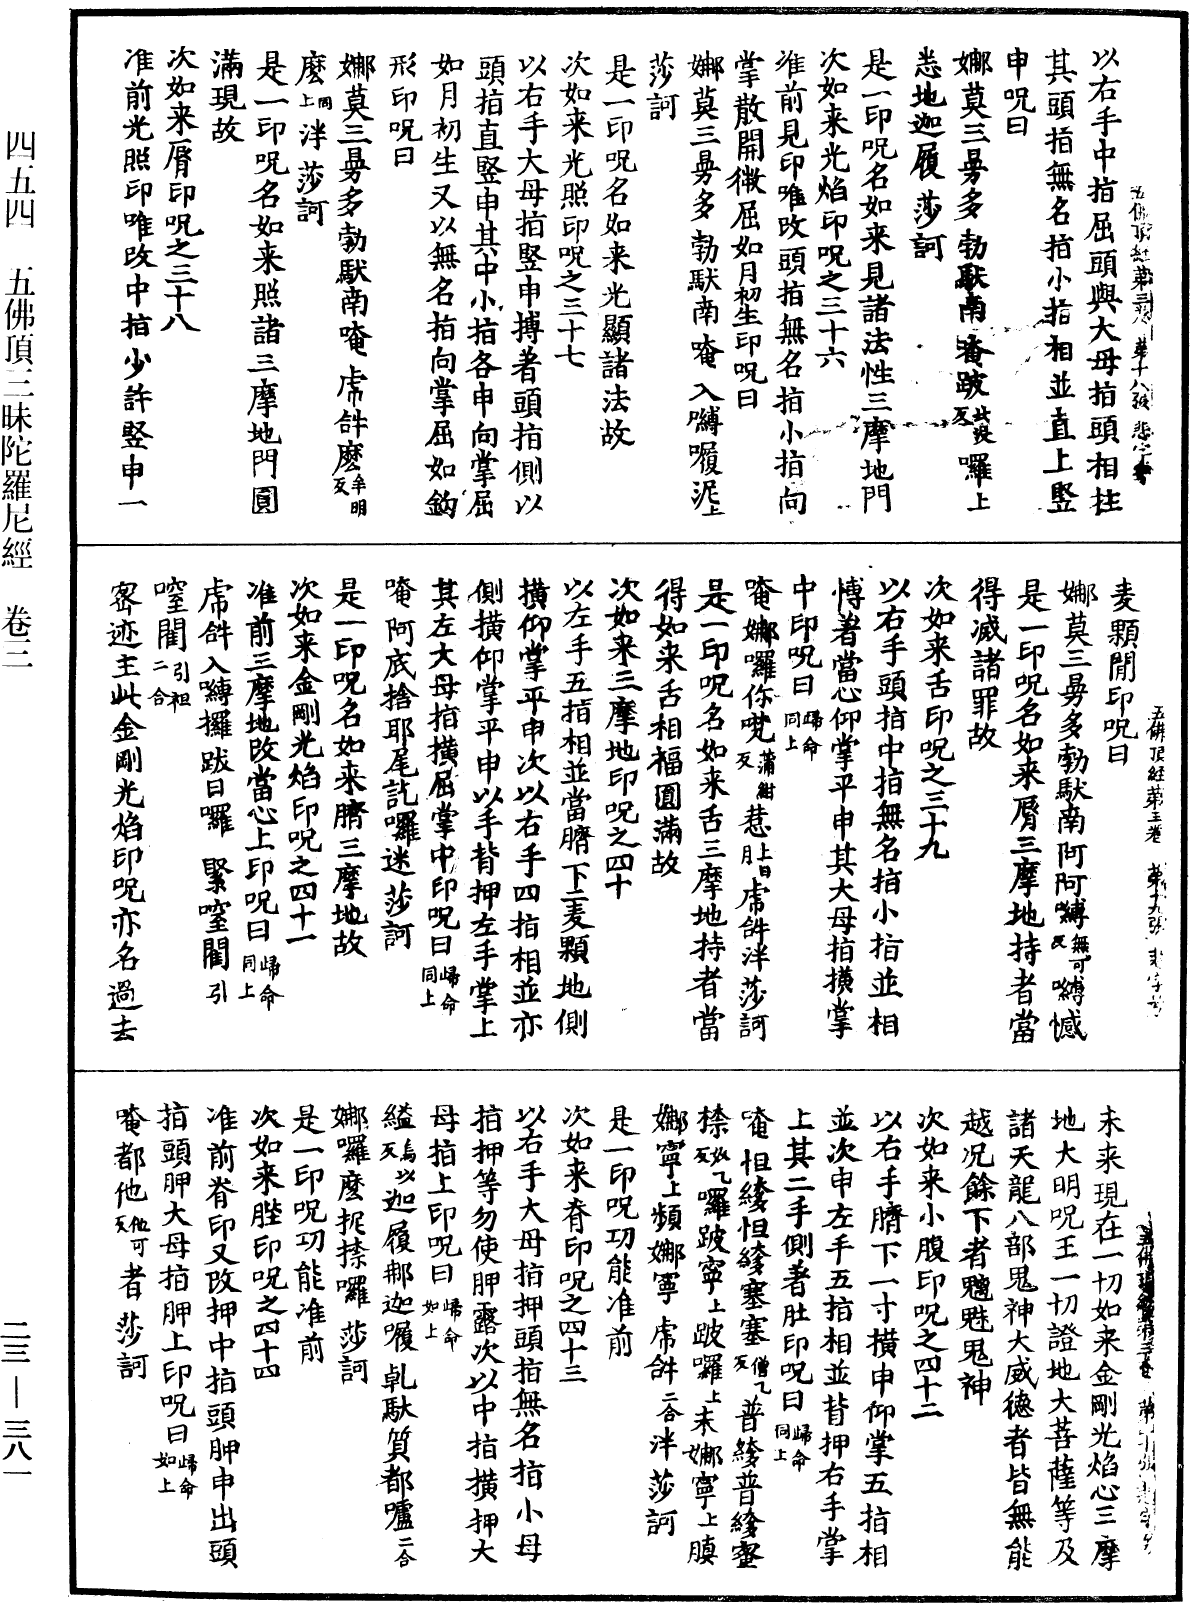 以右手中指屈頭與大母指頭相拄
其頭指無名指小指相並直上豎
申呪曰
娜莫三曼多勃馱南唵跛
悉地迦履莎訶
是一印呪名如来見諸法性三摩地門
次如来光焰印呪之三十六
准前見印唯改頭指無名指小指向
掌散開微屈如月初生印呪曰
娜莫三曼多勃馱南唵入嚩囉泥上
莎訶
是一印呪名如来光顯諸法故
次如来光照印呪之三十七
以右手大母指豎申搏著頭指側以
頭指直豎申其中小指各申向掌屈
如月初生又以無名指向掌屈如鈎
形印呪曰
娜莫三曼多勃馱南唵虎𤙖麽牟明反
麽同上泮莎訶
是一印呪名如来照諸三摩地門圓
滿現故
次如来脣印呪之三十八
准前光照印唯改中指少許豎申一
麦顆閒印呪曰
娜莫三曼多勃馱南阿阿嚩無可反嚩憾
是一印呪名如来脣三摩地持者當
得滅諸罪故
次如来舌印呪之三十九
以右手頭指中指無名指小指並相
博著當心仰掌平申其大母指横掌
中印呪曰歸命同上
唵娜囉你梵蒲紺反惹虎𤙖泮莎訶
是一印呪名如来舌三摩地持者當
得如来舌相福圓滿故
次如来三摩地印呪之四十
以左手五指相並當臍下二麦顆地側
横仰掌平申次以右手四指相並亦
側横仰掌平申以手背押左手掌上
其左大母指横屈掌中印呪曰歸命同上
唵阿底捨耶尾訖囉迷莎訶
是一印呪名如来臍三摩地故
次如来金剛光焰印呪之四十一
准前三摩地改當心上印呪曰歸命同上
虎𤙖入嚩攞跋日囉緊窒閣引
窒閣引二合
密迹主此金剛光焰印呪亦名過去
未来現在一切如来金剛光焰心三摩
地大明呪王一切證地大菩薩等及
諸天龍八部鬼神大威德者皆無能
越况餘下者魑魅鬼神
次如来小腹印呪之四十二
以右手臍下一寸横申仰掌五指相
並次申左手五指相並背押右手掌
上其二手側著肚印呪曰歸命同上
唵怛䌈怛䌈塞塞僧乙反普䌈普䌈蜜
㮈奴乙反囉跛寧上跛囉上末娜寧上䐜
娜寧上頻娜寧虎𤙖二合泮莎訶
是一印呪功能准前
次如来脊印呪之四十三
以右手大母指押頭指無名指小母
指押等勿使胛露次以中指横押大
母指上印呪曰歸命如上
縊烏以反迦履郍迦囉乹馱質都嚧二合
娜囉麽抳㮈囉莎訶
是一印呪功能准前
次如来䏶印呪之四十四
准前脊印又改押中指頭胛申出頭
指頭胛大母指胛上印呪曰歸命如上
唵都他他可反者莎訶
四五四　五佛頂三昧陀羅尼經　卷三
二三—三八一